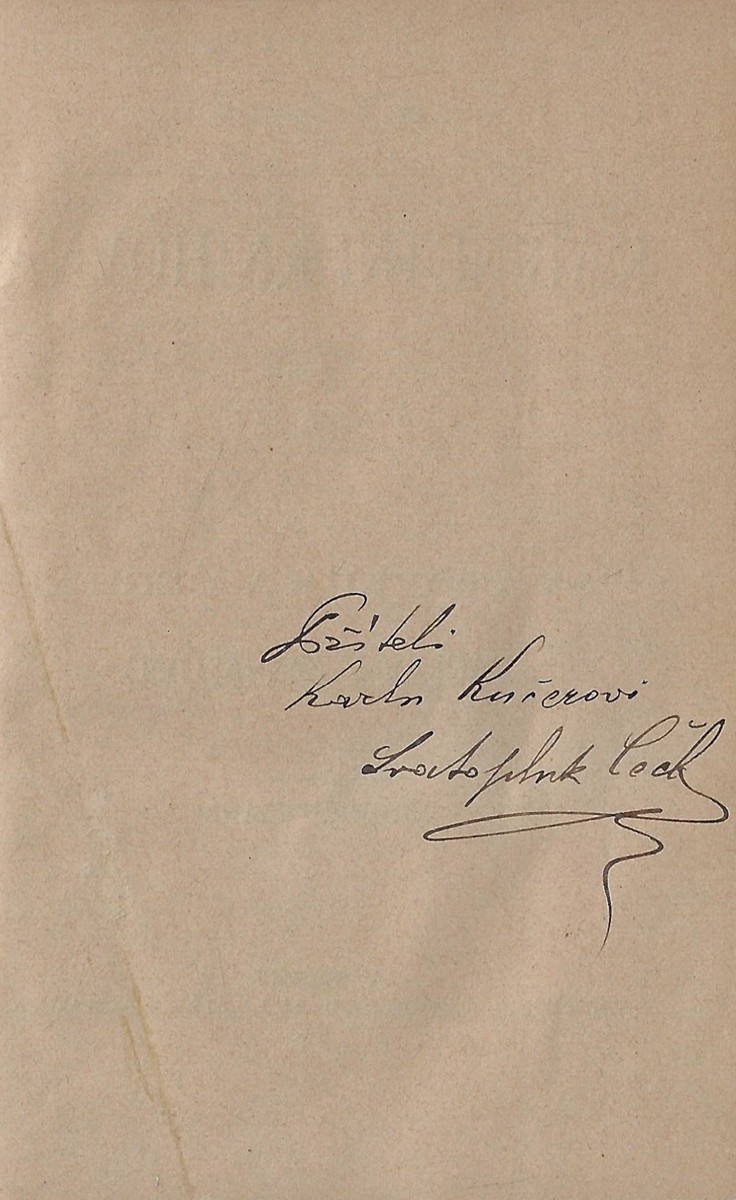 Příteli
Karlu Kučerovi
Svatopluk Čech